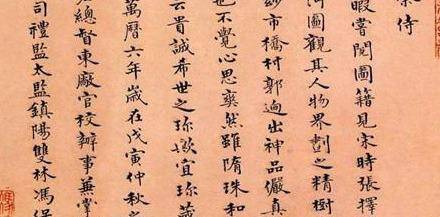 侍
暇嘗閱圖籍見宋時張擇
河圖觀其人物界劃之精樹
妙市橋村郭迥出神品儼真
也不覺心思爽然雖隋珠和
云貴誠希世之珍歟宜珍藏
萬曆六年歲在戊寅仲秋之
總督東廠官校辦事兼掌
司禮監太監鎮陽雙林馮保